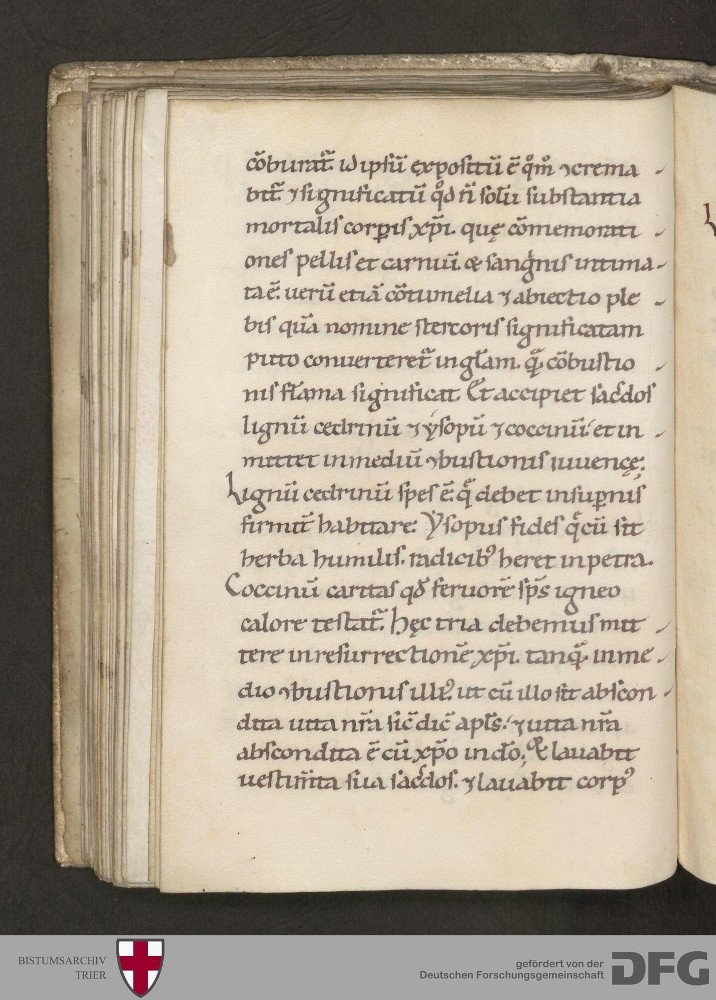 cōburat᷑. id ipsū expositū ē qͦm̄ ⁊ crema
bit᷑. ⁊ significatū qd̄ n̄ solū substantia
mortalis corꝑis xp̄i. quę cōmemorati
ones pellis et carniū. & sangͥnis intima
ta ē. uerū etiā cōtumelia ⁊ abiectio ple
bis quā nomine stercoris significatam
puto conuerteret᷑ in gl̄am. quā cōbustio
nis flāma significat. Et accipiet sacͤdos
lignū cedrinū ⁊ ẏsopū ⁊ coccinū. et in
mittet in mediū ↄbustionis iuuencę.
Lignū cedrinū spes ē. quę debet in suꝑnis
firmit᷑ habitare. Ẏsopus fides quę cū sit
herba humilis. radicibꝰ heret in petra.
Coccinū caritas qd̄ feruorē sp̄s igneo
calore testat᷑. hęc tria debemus mit
tere in resurrectionē xp̄i. tanquā in me
dio ↄbustionis illiꝰ. ut cū illo sit abscon
dita uita nr̄a sic̄ dic̄ apl̄s. ⁊ uita nr̄a
abscondita ē cū xp̄o in do̅. Et lauabit
uestim̄ta sua sacͤdos. ⁊ lauabit corpꝰ
BISTUMSARCHIV
TRIER
gefördert von der
Deutschen Forschungsgemeinschaft
DFG